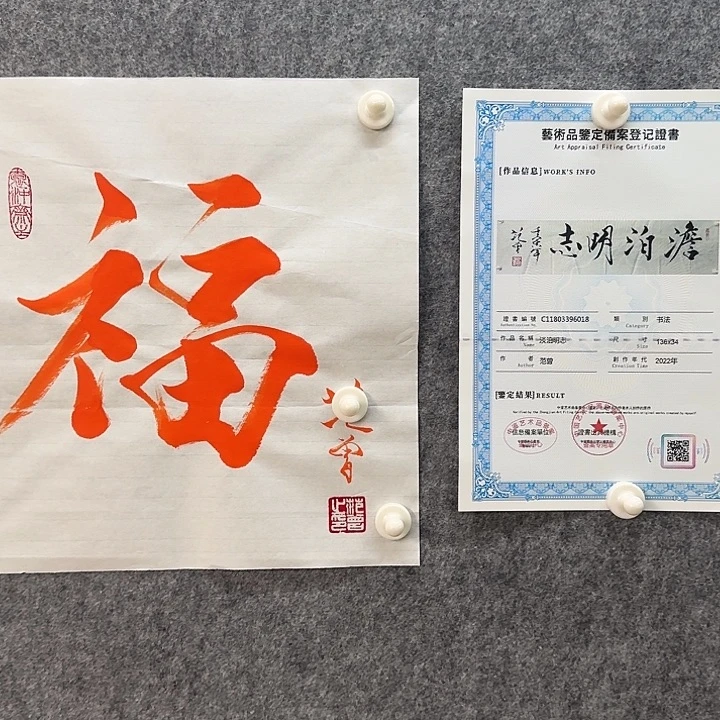 福
范曾
藝術品鑒定備案登记證書
Art Appraisal Filing Certificate
[作品信息]WORK'S INFO
澹泊明志
范曾
證書編號 C11803396018 類別 书法
Category
作品名稱 淡泊明志 尺寸 136x34
Name Size
作者 范曾 創作年代 2022年
Author Creation Time
[鑒定結果]RESULT
信息備案單位